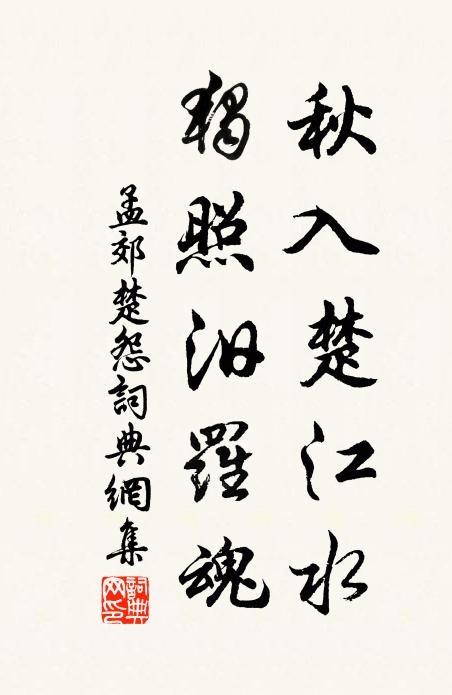 秋入楚江水
獨照汨羅魂
孟郊楚怨詞典網集
詞典网印